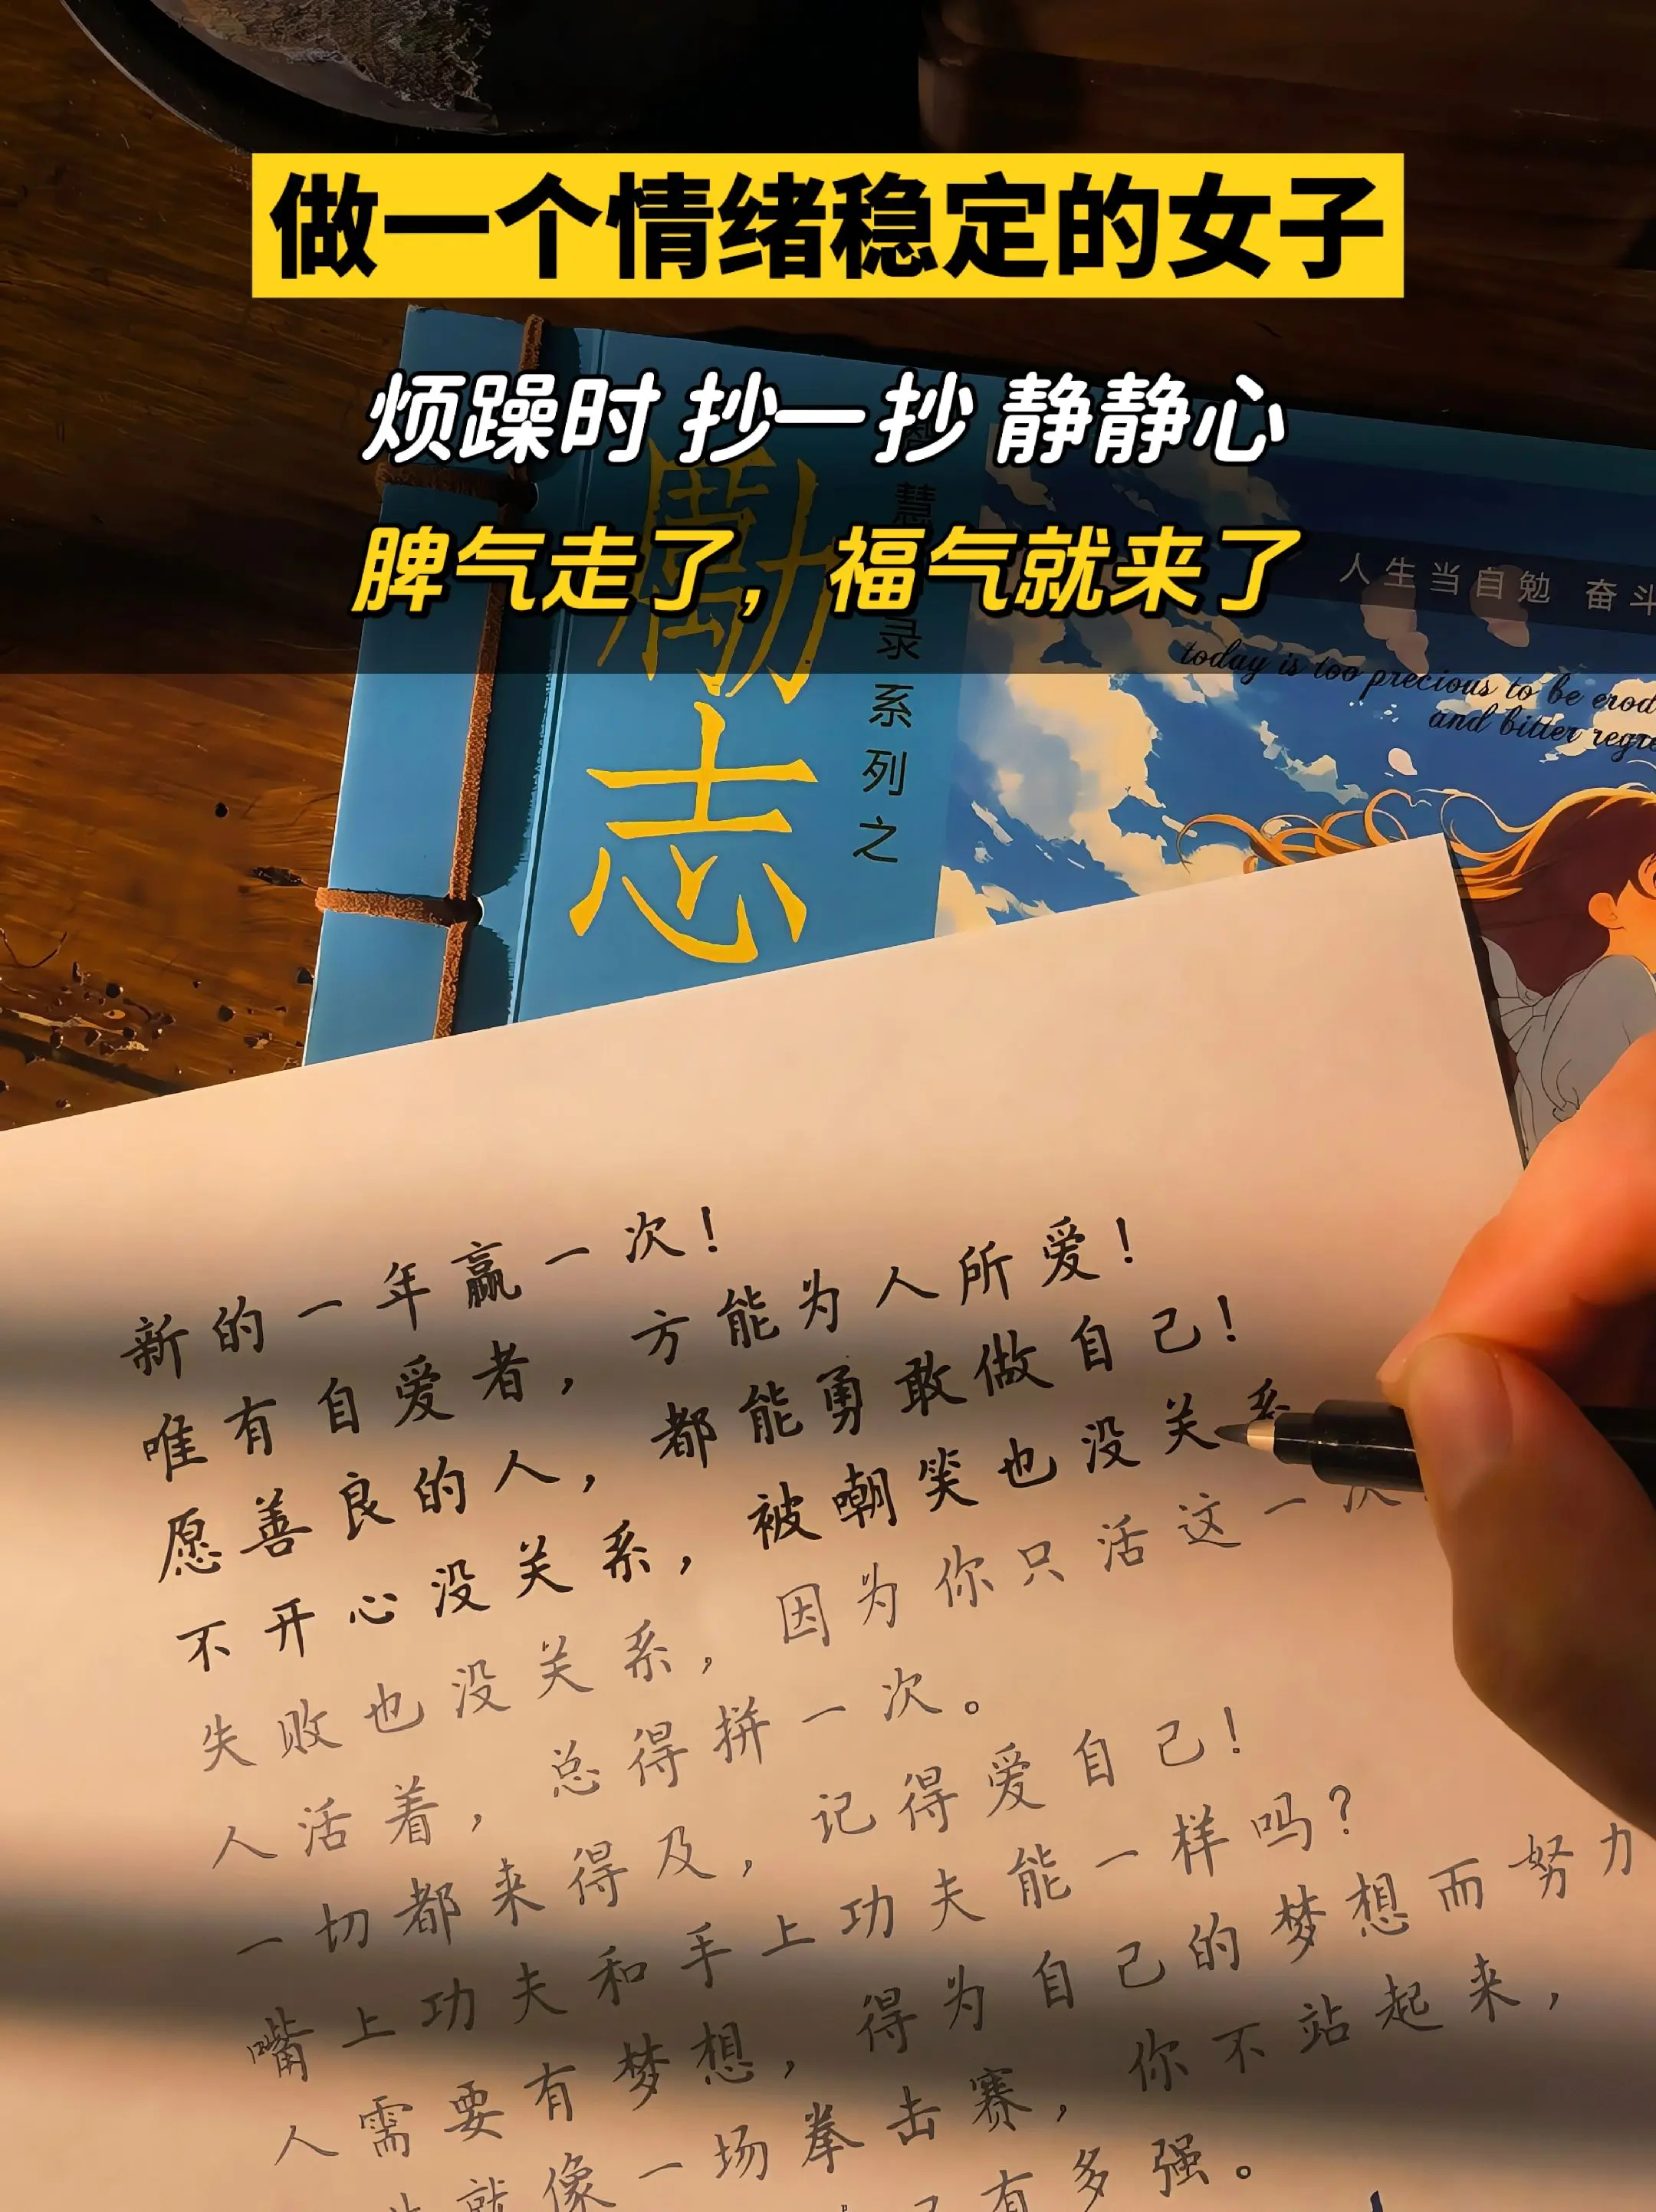 做一个情绪稳定的女子
烦躁时 抄一抄 静静心
脾气走了，福气就来了
勵志
慧录系列之
人生当自勉 奋斗
today is too precious to be erod
and bitter regre
新的一年赢一次！
唯有自爱者，方能为人所爱！
愿善良的人，都能勇敢做自己！
不开心没关系，被嘲笑也没关系
失败也没关系，因为你只活这一次
人活着，总得拼一次。
一切都来得及，记得爱自己！
嘴上功夫和手上功夫能一样吗？
人需要有梦想，得为自己的梦想而努力
就像一场拳击赛，你不站起来，
己有多强。